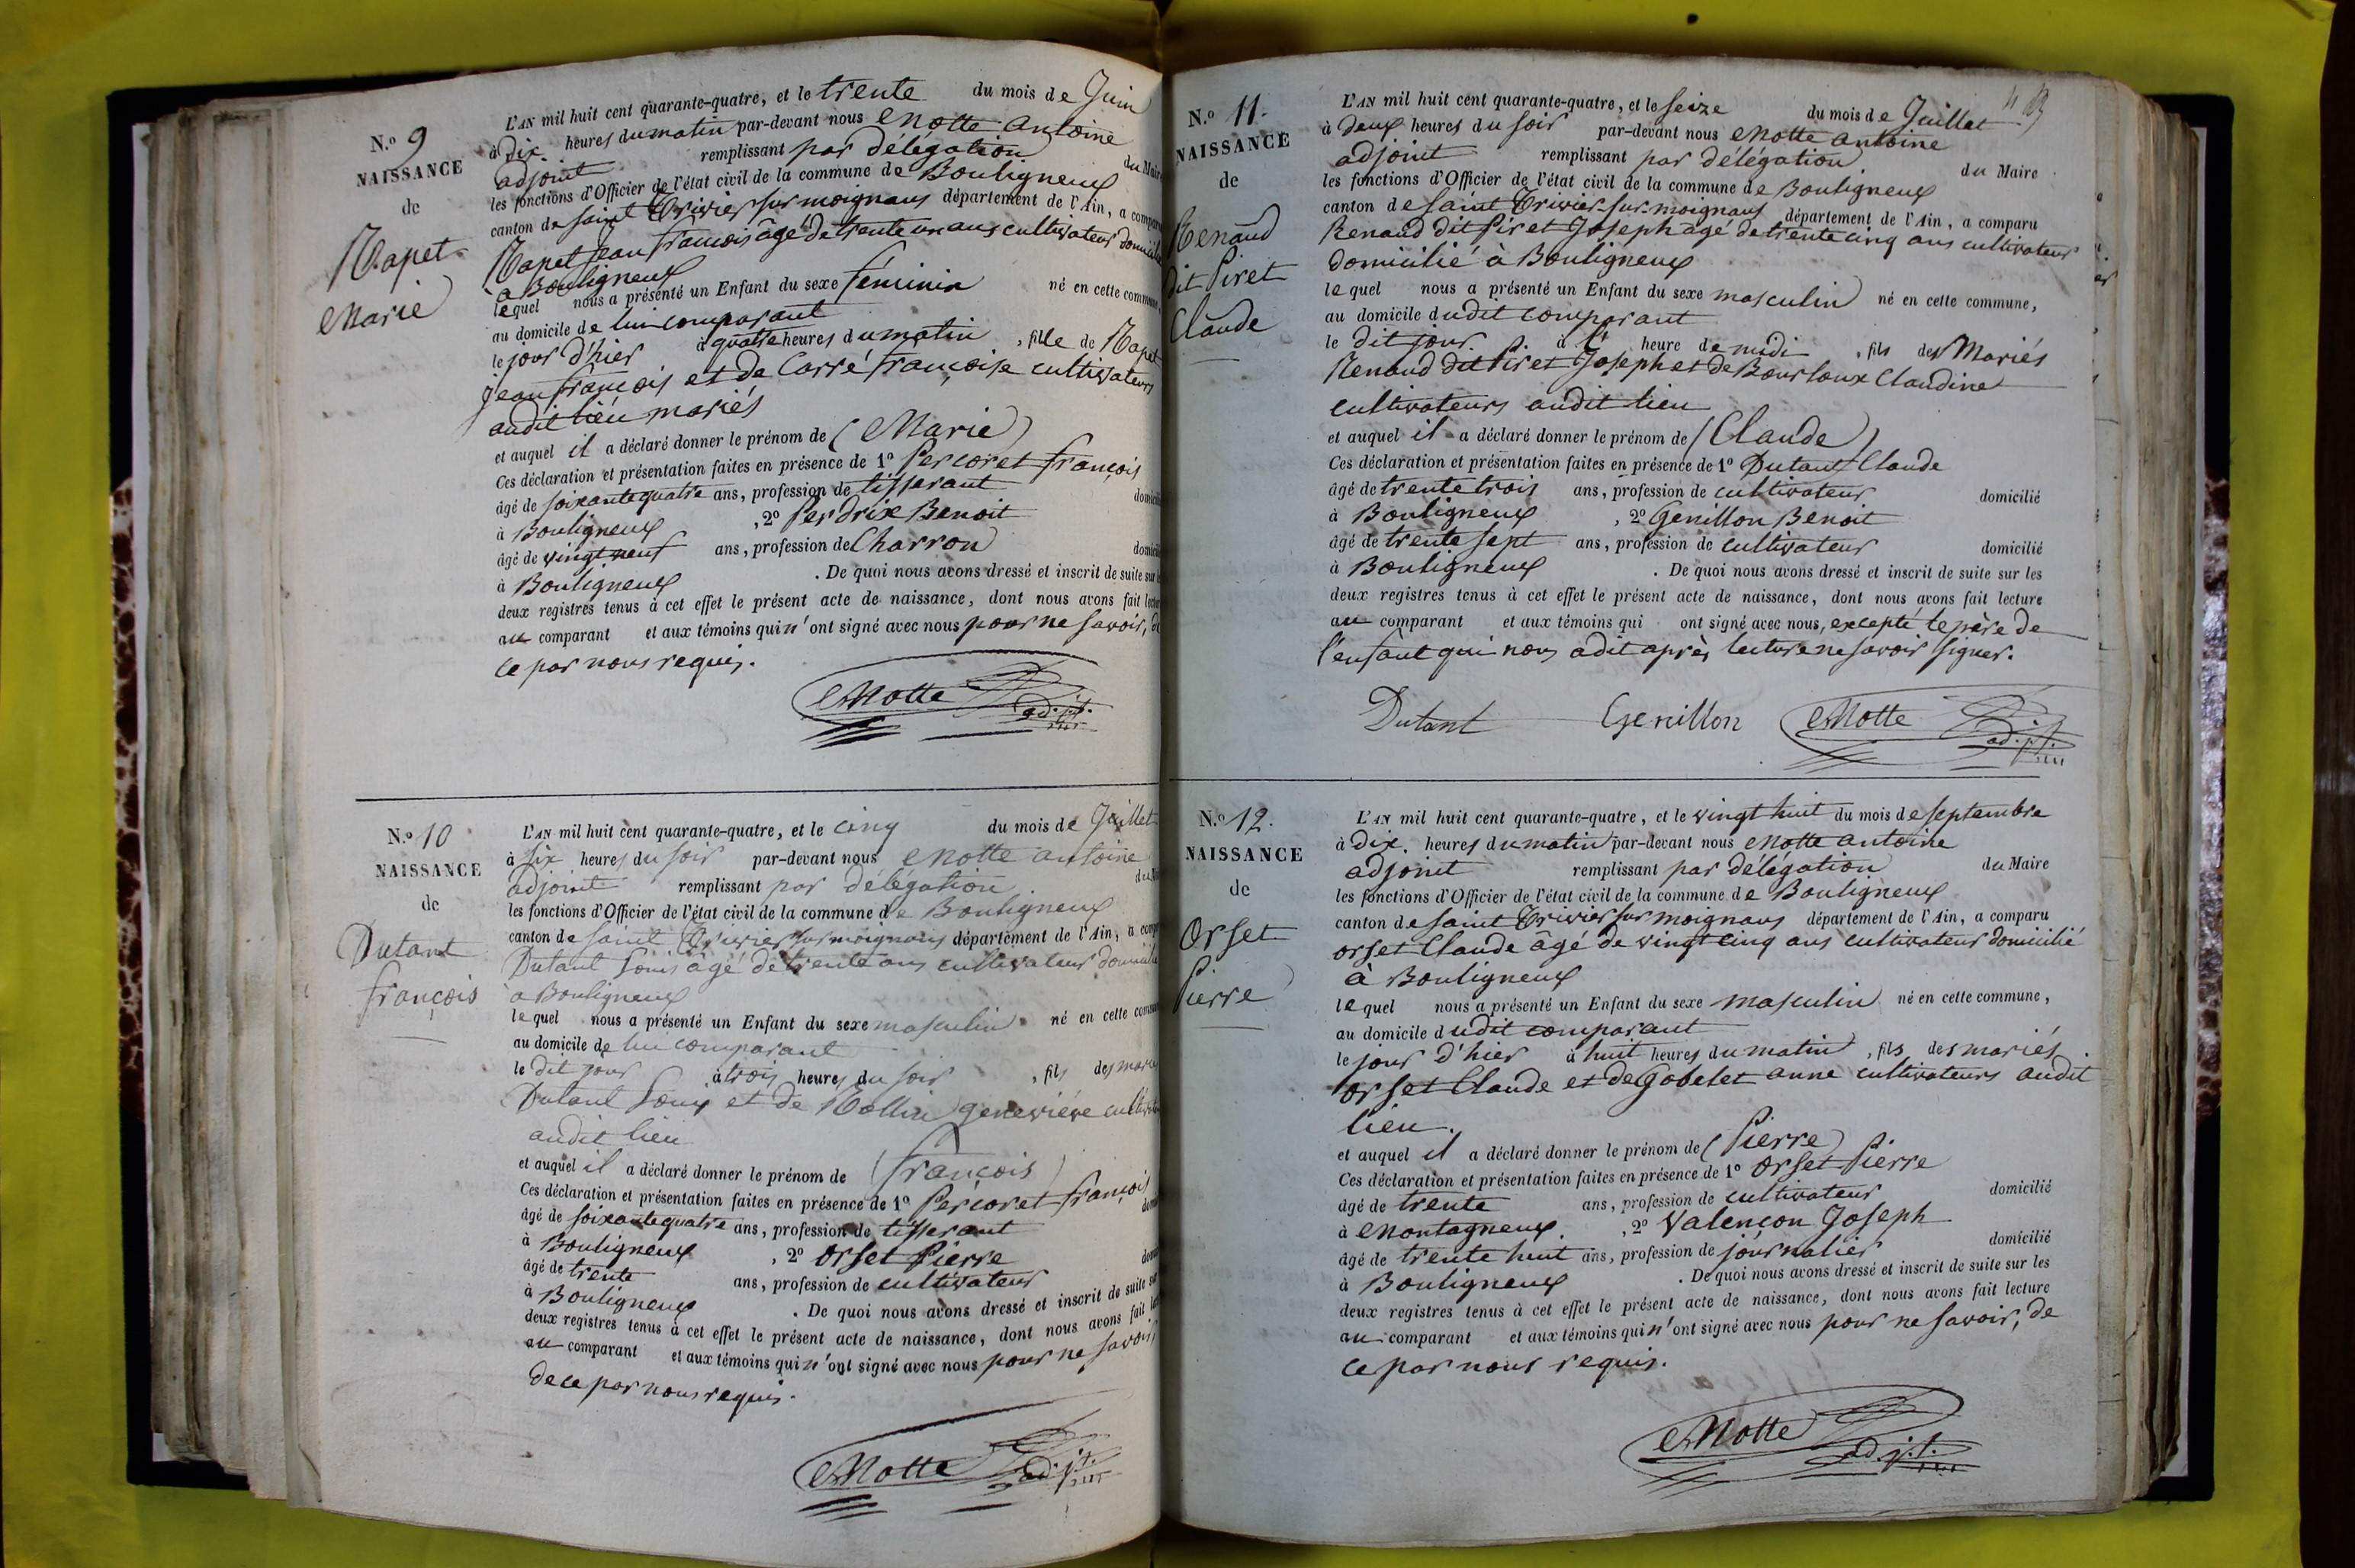 N.º 9
NAISSANCE
de
Marie
L'AN mil huit cent quarante-quatre, et le trente du mois de Juin
à dix heures du matin par-devant nous Motte antoine
adjoint remplissant par délégation du Maire
les fonctions d'Officier de l'état civil de la commune de Bouligneux
canton de saint Trivier sur moignans département de l'Ain, a
jean françois âgé de trente un ans cultivateur
à Bouligneux
lequel nous a présenté un Enfant du sexe féminin né en cette
au domicile de lui comparant
le jour d'hier à quatre heures du matin, fille de
jean françois et de Carré françoise cultivateurs
audit lieu mariés
et auquel il a déclaré donner le prénom de (Marie)
Ces déclaration et présentation faites en présence de 1º Percoret françois
âgé de soixante quatre ans, profession de tisserant
à Bouligneux, 2º Perdrix Benoit
âgé de vingt neuf ans, profession de Charron
à Bouligneux. De quoi nous avons dressé et inscrit de suite sur
deux registres tenus à cet effet le présent acte de naissance, dont nous avons fait
au comparant et aux témoins qui n'ont signé avec nous pour ne savoir, de
ce par nous requis.
Motte adj.t.
N.º 10
NAISSANCE
de
Dutant
françois
L'AN mil huit cent quarante-quatre, et le cinq du mois de Juillet
à six heures du soir par-devant nous Motte antoine
adjoint remplissant par délégation
les fonctions d'Officier de l'état civil de la commune de Bouligneux
canton de saint Trivier sur moignans département de l'Ain, a
Dutant Louis âgé de trente ans cultivateur
à Bouligneux
lequel nous a présenté un Enfant du sexe masculin né en cette
au domicile de lui comparant
le dit jour à trois heures du soir, fils des
Dutant Louis et de geneviéve
audit lieu
et auquel il a déclaré donner le prénom de (françois)
Ces déclaration et présentation faites en présence de 1º Percoret françois
âgé de soixante quatre ans, profession de tisserant
à Bouligneux, 2º Orset Pierre
âgé de trente ans, profession de cultivateur
à Bouligneux. De quoi nous avons dressé et inscrit de suite sur
deux registres tenus à cet effet le présent acte de naissance, dont nous avons fait
au comparant et aux témoins qui n'ont signé avec nous pour ne savoir,
de ce par nous requis.
Motte adj.t.
N.º 11.
NAISSANCE
de
Renaud
dit Piret
Claude
L'AN mil huit cent quarante-quatre, et le seize du mois de Juillet
à deux heures du soir par-devant nous Motte antoine
adjoint remplissant par délégation du Maire
les fonctions d'Officier de l'état civil de la commune de Bouligneux
canton de saint Trivier-sur-moignans département de l'Ain, a comparu
Renaud dit Piret Joseph âgé de trente cinq ans cultivateur
domicilié à Bouligneux
lequel nous a présenté un Enfant du sexe masculin né en cette commune,
au domicile dudit comparant
le dit jour à heure de midi, fils des Mariés
Renaud dit Piret Joseph et de Bourloux Claudine
cultivateurs audit lieu
et auquel il a déclaré donner le prénom de (Claude)
Ces déclaration et présentation faites en présence de 1º Dutant Claude
âgé de trente trois ans, profession de cultivateur domicilié
à Bouligneux, 2º Genillon Benoit
âgé de trente sept ans, profession de cultivateur domicilié
à Bouligneux. De quoi nous avons dressé et inscrit de suite sur les
deux registres tenus à cet effet le présent acte de naissance, dont nous avons fait lecture
au comparant et aux témoins qui ont signé avec nous, excepté le père de
l'enfant qui nous a dit après lecture ne savoir signer.
Dutant Genillon Motte adj.t.
N.º 12.
NAISSANCE
de
Orset
Pierre
L'AN mil huit cent quarante-quatre, et le vingt huit du mois de septembre
à dix heures du matin par-devant nous Motte antoine
adjoint remplissant par délégation du Maire
les fonctions d'Officier de l'état civil de la commune de Bouligneux
canton de saint Trivier sur moignans département de l'Ain, a comparu
orset Claude âgé de vingt cinq ans cultivateur domicilié
à Bouligneux
lequel nous a présenté un Enfant du sexe masculin né en cette commune,
au domicile dudit comparant
le jour d'hier à huit heures du matin, fils des mariés
orset Claude et de Gobelet anne cultivateurs audit
lieu.
et auquel il a déclaré donner le prénom de (Pierre)
Ces déclaration et présentation faites en présence de 1º Orset Pierre
âgé de trente ans, profession de cultivateur domicilié
à Montagneux, 2º Valençon Joseph
âgé de trente huit ans, profession de journalier domicilié
à Bouligneux. De quoi nous avons dressé et inscrit de suite sur les
deux registres tenus à cet effet le présent acte de naissance, dont nous avons fait lecture
au comparant et aux témoins qui n'ont signé avec nous pour ne savoir, de
ce par nous requis.
Motte adj.t.